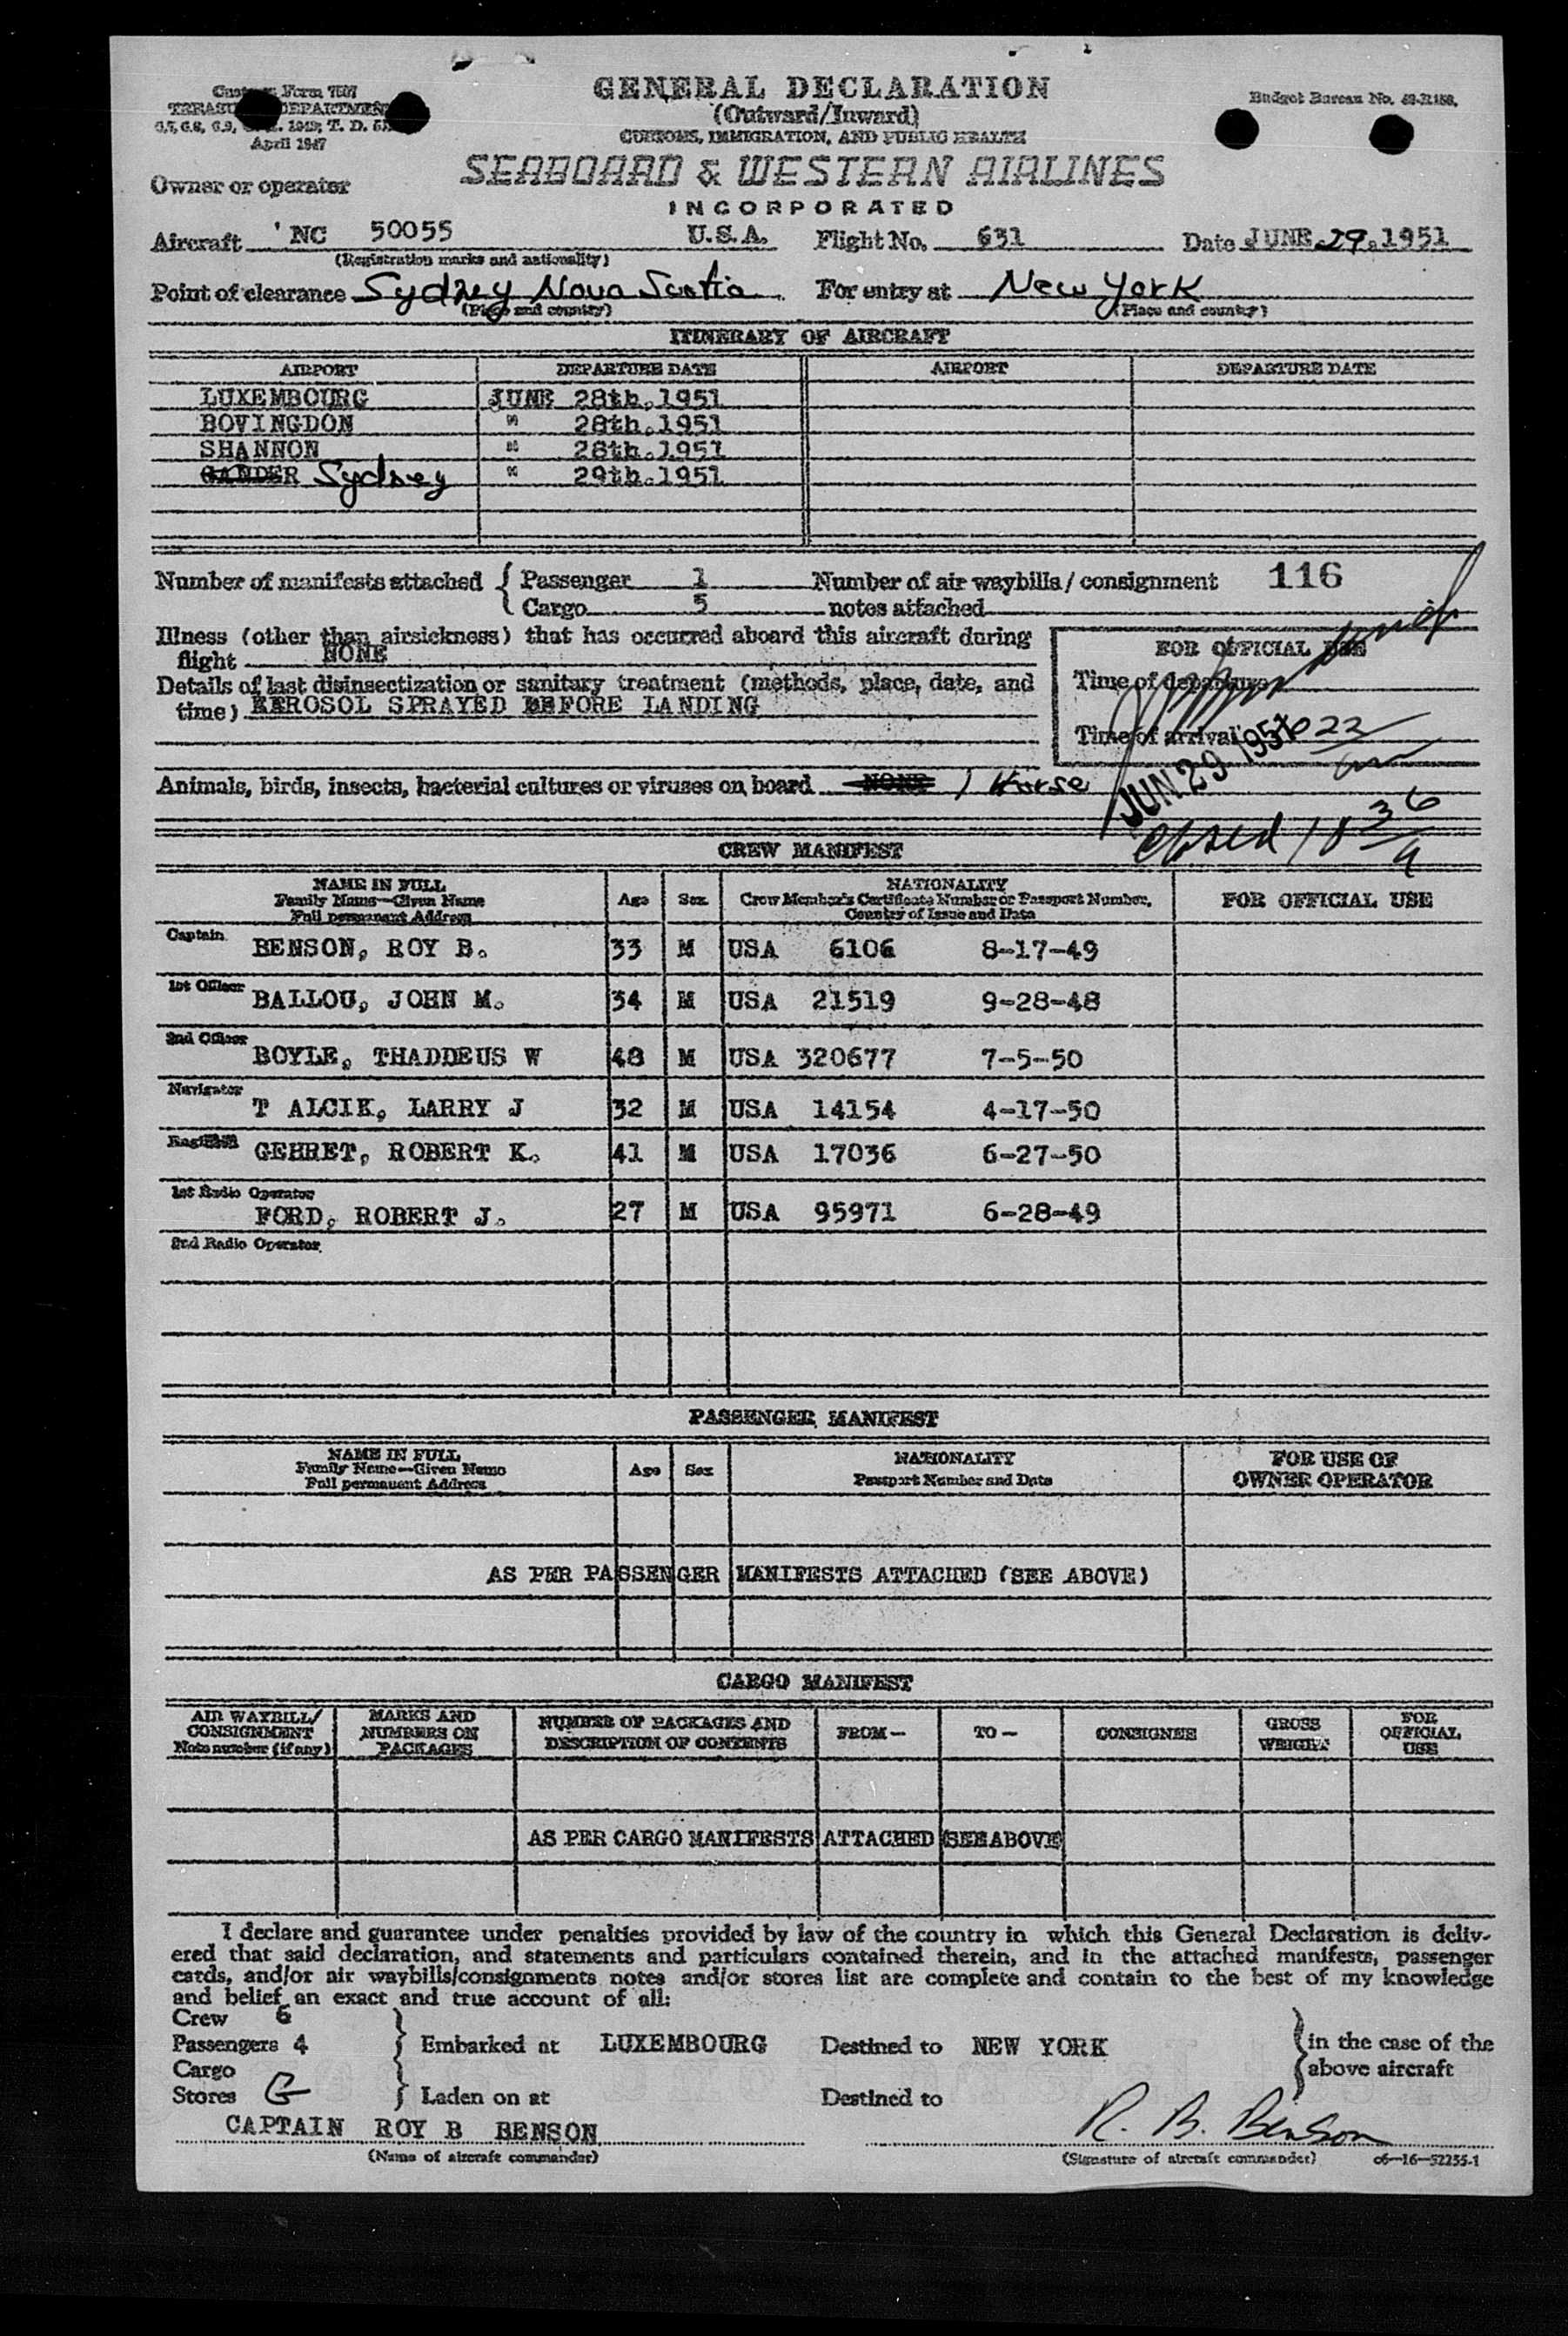 Customs Form 7507
TREASURY DEPARTMENT
April 1947
GENERAL DECLARATION
(Outward/Inward)
CUSTOMS, IMMIGRATION, AND PUBLIC HEALTH
Budget Bureau No.
Owner or operator
SEABOARD & WESTERN AIRLINES
INCORPORATED
Aircraft NC 50055 U.S.A. Flight No. 631 Date JUNE 29. 1951
(Registration marks and nationality)
Point of clearance Sydney Nova Scotia For entry at New York
(Place and country) (Place and country)
ITINERARY OF AIRCRAFT
AIRPORT DEPARTURE DATE AIRPORT DEPARTURE DATE
LUXEMBOURG JUNE 28th.1951
BOVINGDON " 28th.1951
SHANNON " 28th.1951
GANDER Sydney " 29th.1951
Number of manifests attached { Passenger 1 Number of air waybills / consignment 116
Cargo 5 notes attached
Illness (other than airsickness) that has occurred aboard this aircraft during
flight NONE
Details of last disinsectization or sanitary treatment (methods, place, date, and
time) AEROSOL SPRAYED BEFORE LANDING
FOR OFFICIAL USE
Time of departure
Time of arrival 1022
JUN 29 1951
Animals, birds, insects, bacterial cultures or viruses on board NONE 1 Horse
closed 10 36
CREW MANIFEST
NAME IN FULL Age Sex NATIONALITY FOR OFFICIAL USE
Family Name—Given Name Crew Member's Certificate Number or Passport Number,
Full permanent Address Country of Issue and Data
Captain BENSON, ROY B. 33 M USA 6106 8-17-49
1st Officer BALLOU, JOHN M. 34 M USA 21519 9-28-48
2nd Officer BOYLE, THADDEUS W 48 M USA 320677 7-5-50
Navigator T ALCIK, LARRY J 32 M USA 14154 4-17-50
GEHRET, ROBERT K. 41 M USA 17036 6-27-50
1st Radio Operator
FORD, ROBERT J. 27 M USA 95971 6-28-49
2nd Radio Operator
PASSENGER MANIFEST
NAME IN FULL Age Sex NATIONALITY FOR USE OF
Family Name—Given Name Passport Number and Data OWNER OPERATOR
Full permanent Address
AS PER PASSENGER MANIFESTS ATTACHED (SEE ABOVE)
CARGO MANIFEST
AIR WAYBILL/ MARKS AND NUMBER OF PACKAGES AND FROM— TO— CONSIGNEE GROSS FOR
CONSIGNMENT NUMBERS ON DESCRIPTION OF CONTENTS WEIGHT OFFICIAL
Note number (if any) PACKAGES USE
AS PER CARGO MANIFESTS ATTACHED (SEE ABOVE
I declare and guarantee under penalties provided by law of the country in which this General Declaration is deliv-
ered that said declaration, and statements and particulars contained therein, and in the attached manifests, passenger
cards, and/or air waybills/consignments notes and/or stores list are complete and contain to the best of my knowledge
and belief an exact and true account of all:
Crew 6
Passengers 4 Embarked at LUXEMBOURG Destined to NEW YORK in the case of the
Cargo above aircraft
Stores G Laden on at Destined to
CAPTAIN ROY B BENSON R. B. Benson
(Name of aircraft commander) (Signature of aircraft commander) c6—16—52255-1